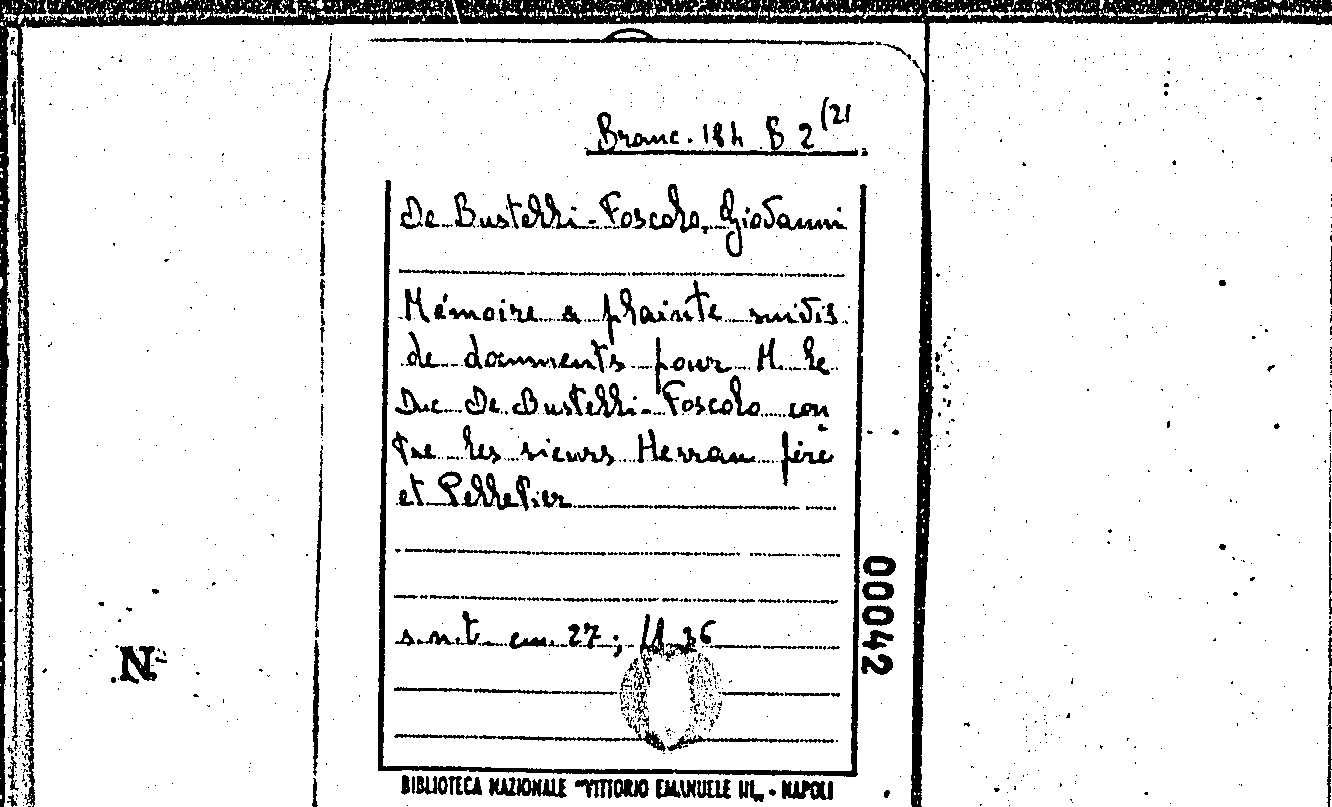 Branc. 184 B 2 (21
De Bustelli-Foscolo, Giovanni
Mémoire a plainte suivis
de documents pour M. le
Duc De Bustelli-Foscolo con
tre les sieurs Herran père
et Pelletier
s.n.t. cm. 27;
00042
N
BIBLIOTECA NAZIONALE "VITTORIO EMANUELE III„ - NAPOLI